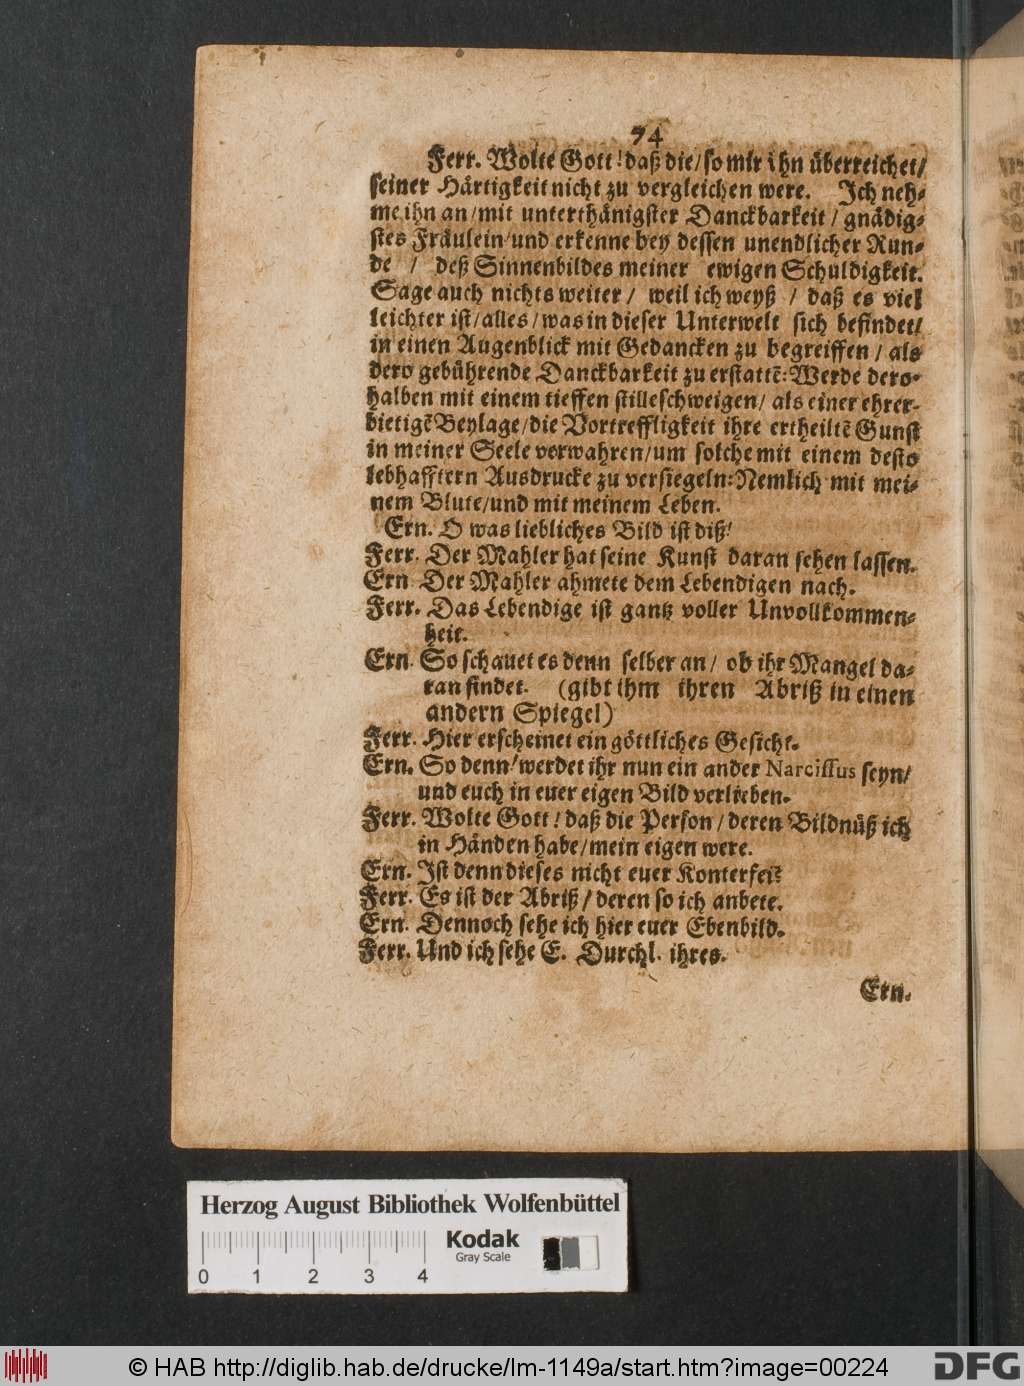 74
Ferr. Wolte Gott! daß die/ so mir ihn überreichet/
seiner Härtigkeit nicht zu vergleichen were. Ich neh-
me ihn an/ mit unterthänigster Danckbarkeit/ gnädig-
stes Fräulein/ und erkenne bey dessen unendlicher Run-
de / deß Sinnenbildes meiner ewigen Schuldigkeit.
Sage auch nichts weiter/ weil ich weyß / daß es viel
leichter ist/ alles/ was in dieser Unterwelt sich befindet/
in einen Augenblick mit Gedancken zu begreiffen/ als
dero gebührende Danckbarkeit zu erstattē: Werde dero-
halben mit einem tieffen stilleschweigen/ als einer ehrer-
bietigē Beylage/ die Vortreffligkeit ihre ertheiltē Gunst
in meiner Seele verwahren/ um solche mit einem desto
lebhafftern Ausdrucke zu versiegeln: Nemlich mit mei-
nem Blute/ und mit meinem Leben.
Ern. O was liebliches Bild ist diß!
Ferr. Der Mahler hat seine Kunst daran sehen lassen.
Ern Der Mahler ahmete dem Lebendigen nach.
Ferr. Das Lebendige ist gantz voller Unvollkommen-
heit.
Ern. So schauet es denn selber an/ ob ihr Mangel da-
ran findet. (gibt ihm ihren Abriß in einen
andern Spiegel)
Ferr. Hier erscheinet ein göttliches Gesicht.
Ern. So denn/ werdet ihr nun ein ander Narcissus seyn/
und euch in euer eigen Bild verlieben.
Ferr. Wolte Gott! daß die Person/ deren Bildnüß ich
in Händen habe/ mein eigen were.
Ern. Ist denn dieses nicht euer Konterfei?
Ferr. Es ist der Abriß/ deren so ich anbete.
Ern. Dennoch sehe ich hier euer Ebenbild.
Ferr. Und ich sehe E. Durchl. ihres.
Ern.
Herzog August Bibliothek Wolfenbüttel
Kodak
Gray Scale
0 1 2 3 4
© HAB http://diglib.hab.de/drucke/lm-1149a/start.htm?image=00224
DFG